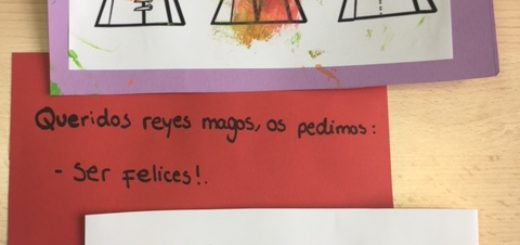 Queridos reyes magos, os pedimos:
- Ser felices!.